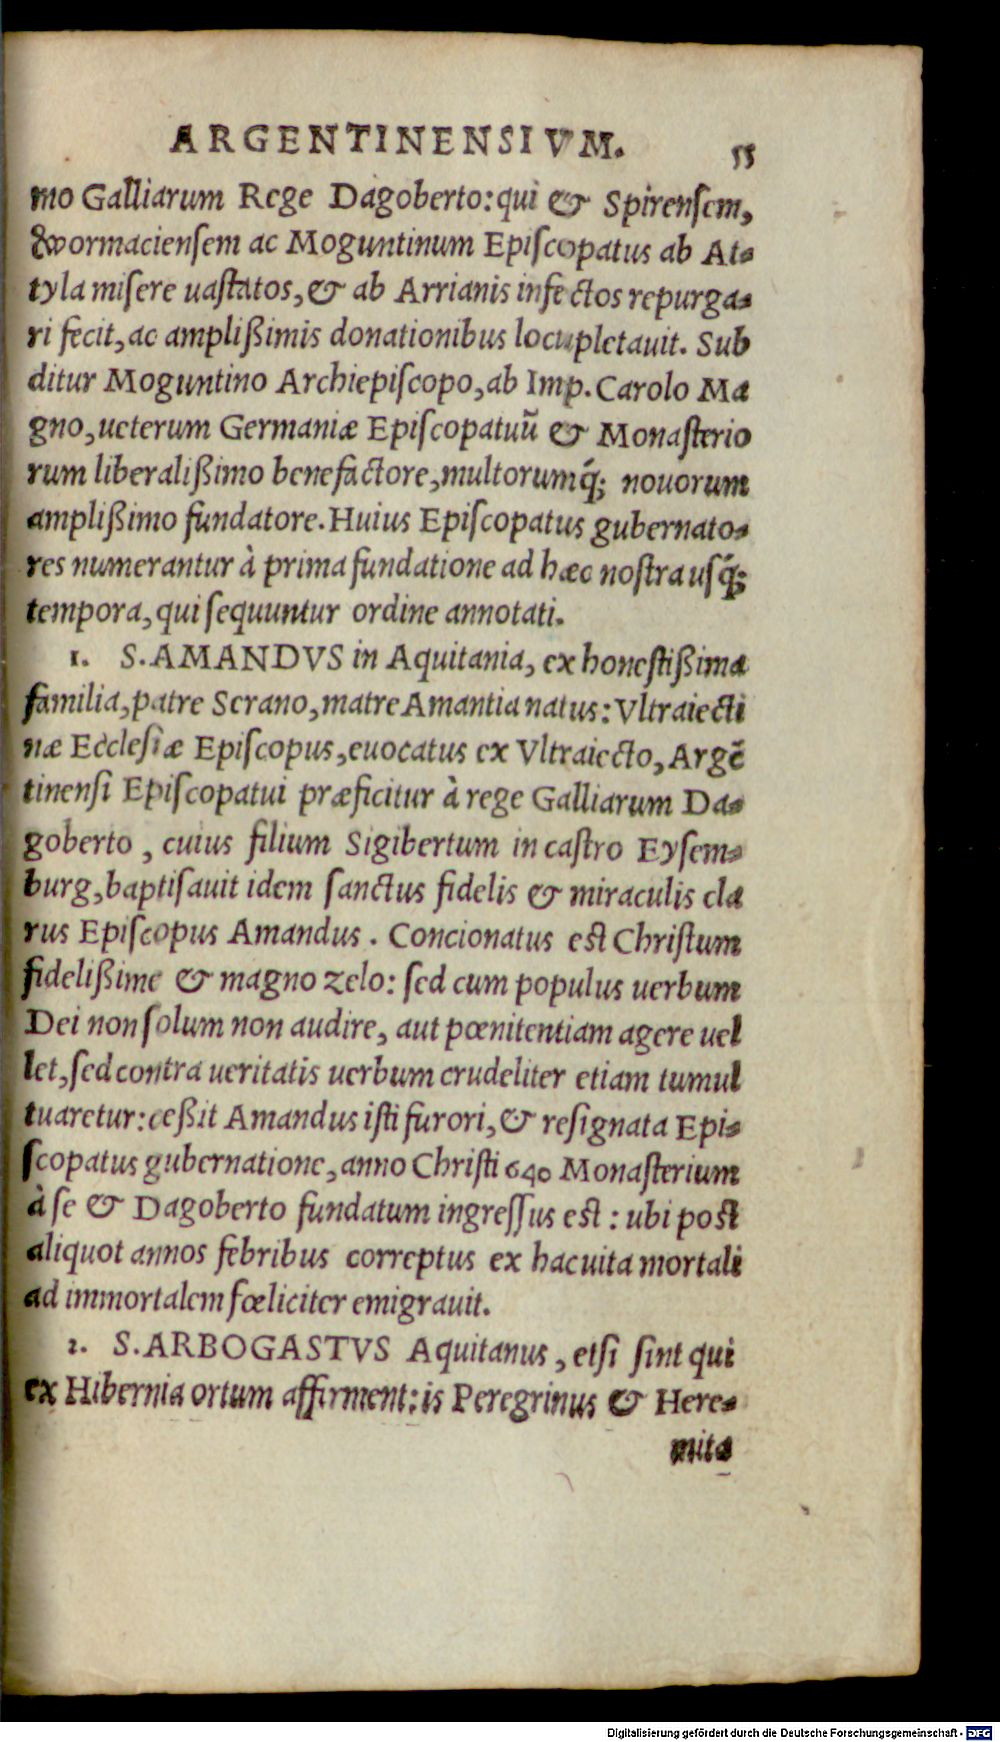 ARGENTINENSIVM. 55
mo Galliarum Rege Dagoberto: qui & Spirensem,
& wormaciensem ac Moguntinum Episcopatus ab At-
tyla misere uastatos, & ab Arrianis infectos repurga-
ri fecit, ac amplißimis donationibus locupletauit. Sub
ditur Moguntino Archiepiscopo, ab Imp. Carolo Ma
gno, ueterum Germaniæ Episcopatuũ & Monasterio
rum liberalißimo benefactore, multorumq́; nouorum
amplißimo fundatore. Huius Episcopatus gubernato-
res numerantur à prima fundatione ad hæc nostra usq́;
tempora, qui sequuntur ordine annotati.
1. S. AMANDVS in Aquitania, ex honestißima
familia, patre Serano, matre Amantia natus: Vltraiecti
næ Ecclesiæ Episcopus, euocatus ex Vltraiecto, Argẽ
tinensi Episcopatui præficitur à rege Galliarum Da-
goberto, cuius filium Sigibertum in castro Eysem-
burg, baptisauit idem sanctus fidelis & miraculis cla
rus Episcopus Amandus. Concionatus est Christum
fidelißime & magno zelo: sed cum populus uerbum
Dei non solum non audire, aut pœnitentiam agere uel
let, sed contra ueritatis uerbum crudeliter etiam tumul
tuaretur: ceßit Amandus isti furori, & resignata Epi-
scopatus gubernatione, anno Christi 640 Monasterium
à se & Dagoberto fundatum ingressus est: ubi post
aliquot annos febribus correptus ex hac uita mortali
ad immortalem fœliciter emigrauit.
2. S. ARBOGASTVS Aquitanus, etsi sint qui
ex Hibernia ortum affirment: is Peregrinus & Here-
mita
Digitalisierung gefördert durch die Deutsche Forschungsgemeinschaft - DFG